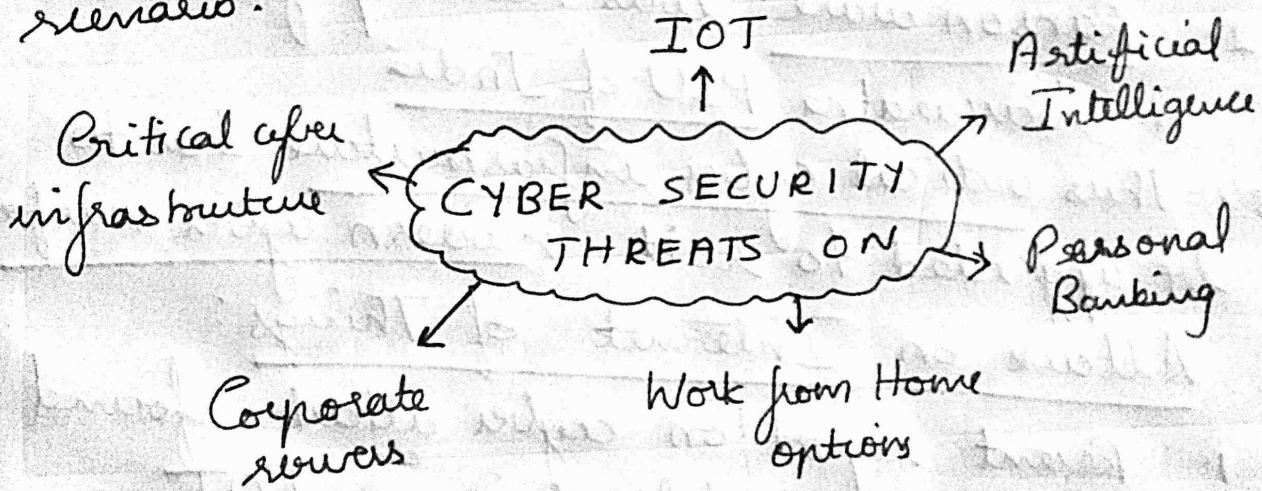 scenario.
IOT
Artificial
Intelligence
Critical cyber
infrastructure
CYBER SECURITY
THREATS ON
Personal
Banking
Corporate
servers
Work from Home
options